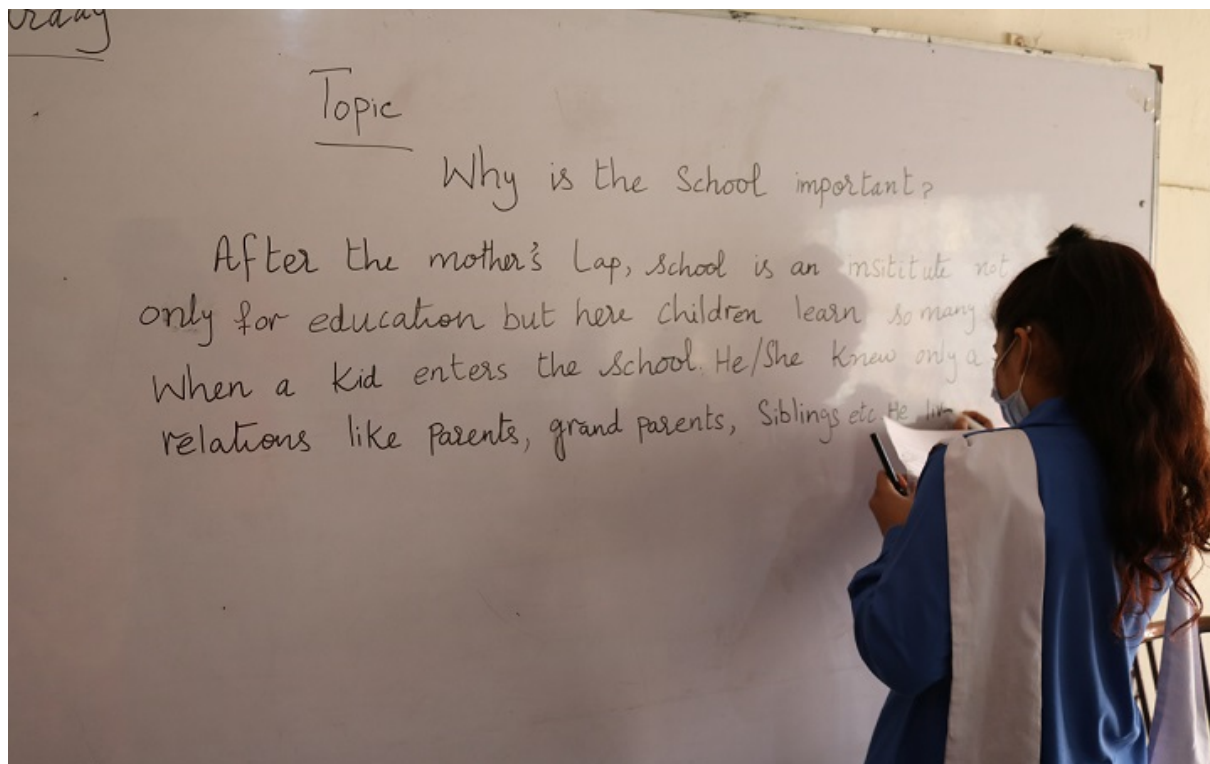 Topic
Why is the School important?
After the mother's Lap, school is an insititute not
only for education but here children learn so many
When a kid enters the school. He/She knew only a
relations like parents, grand parents, Siblings etc. He